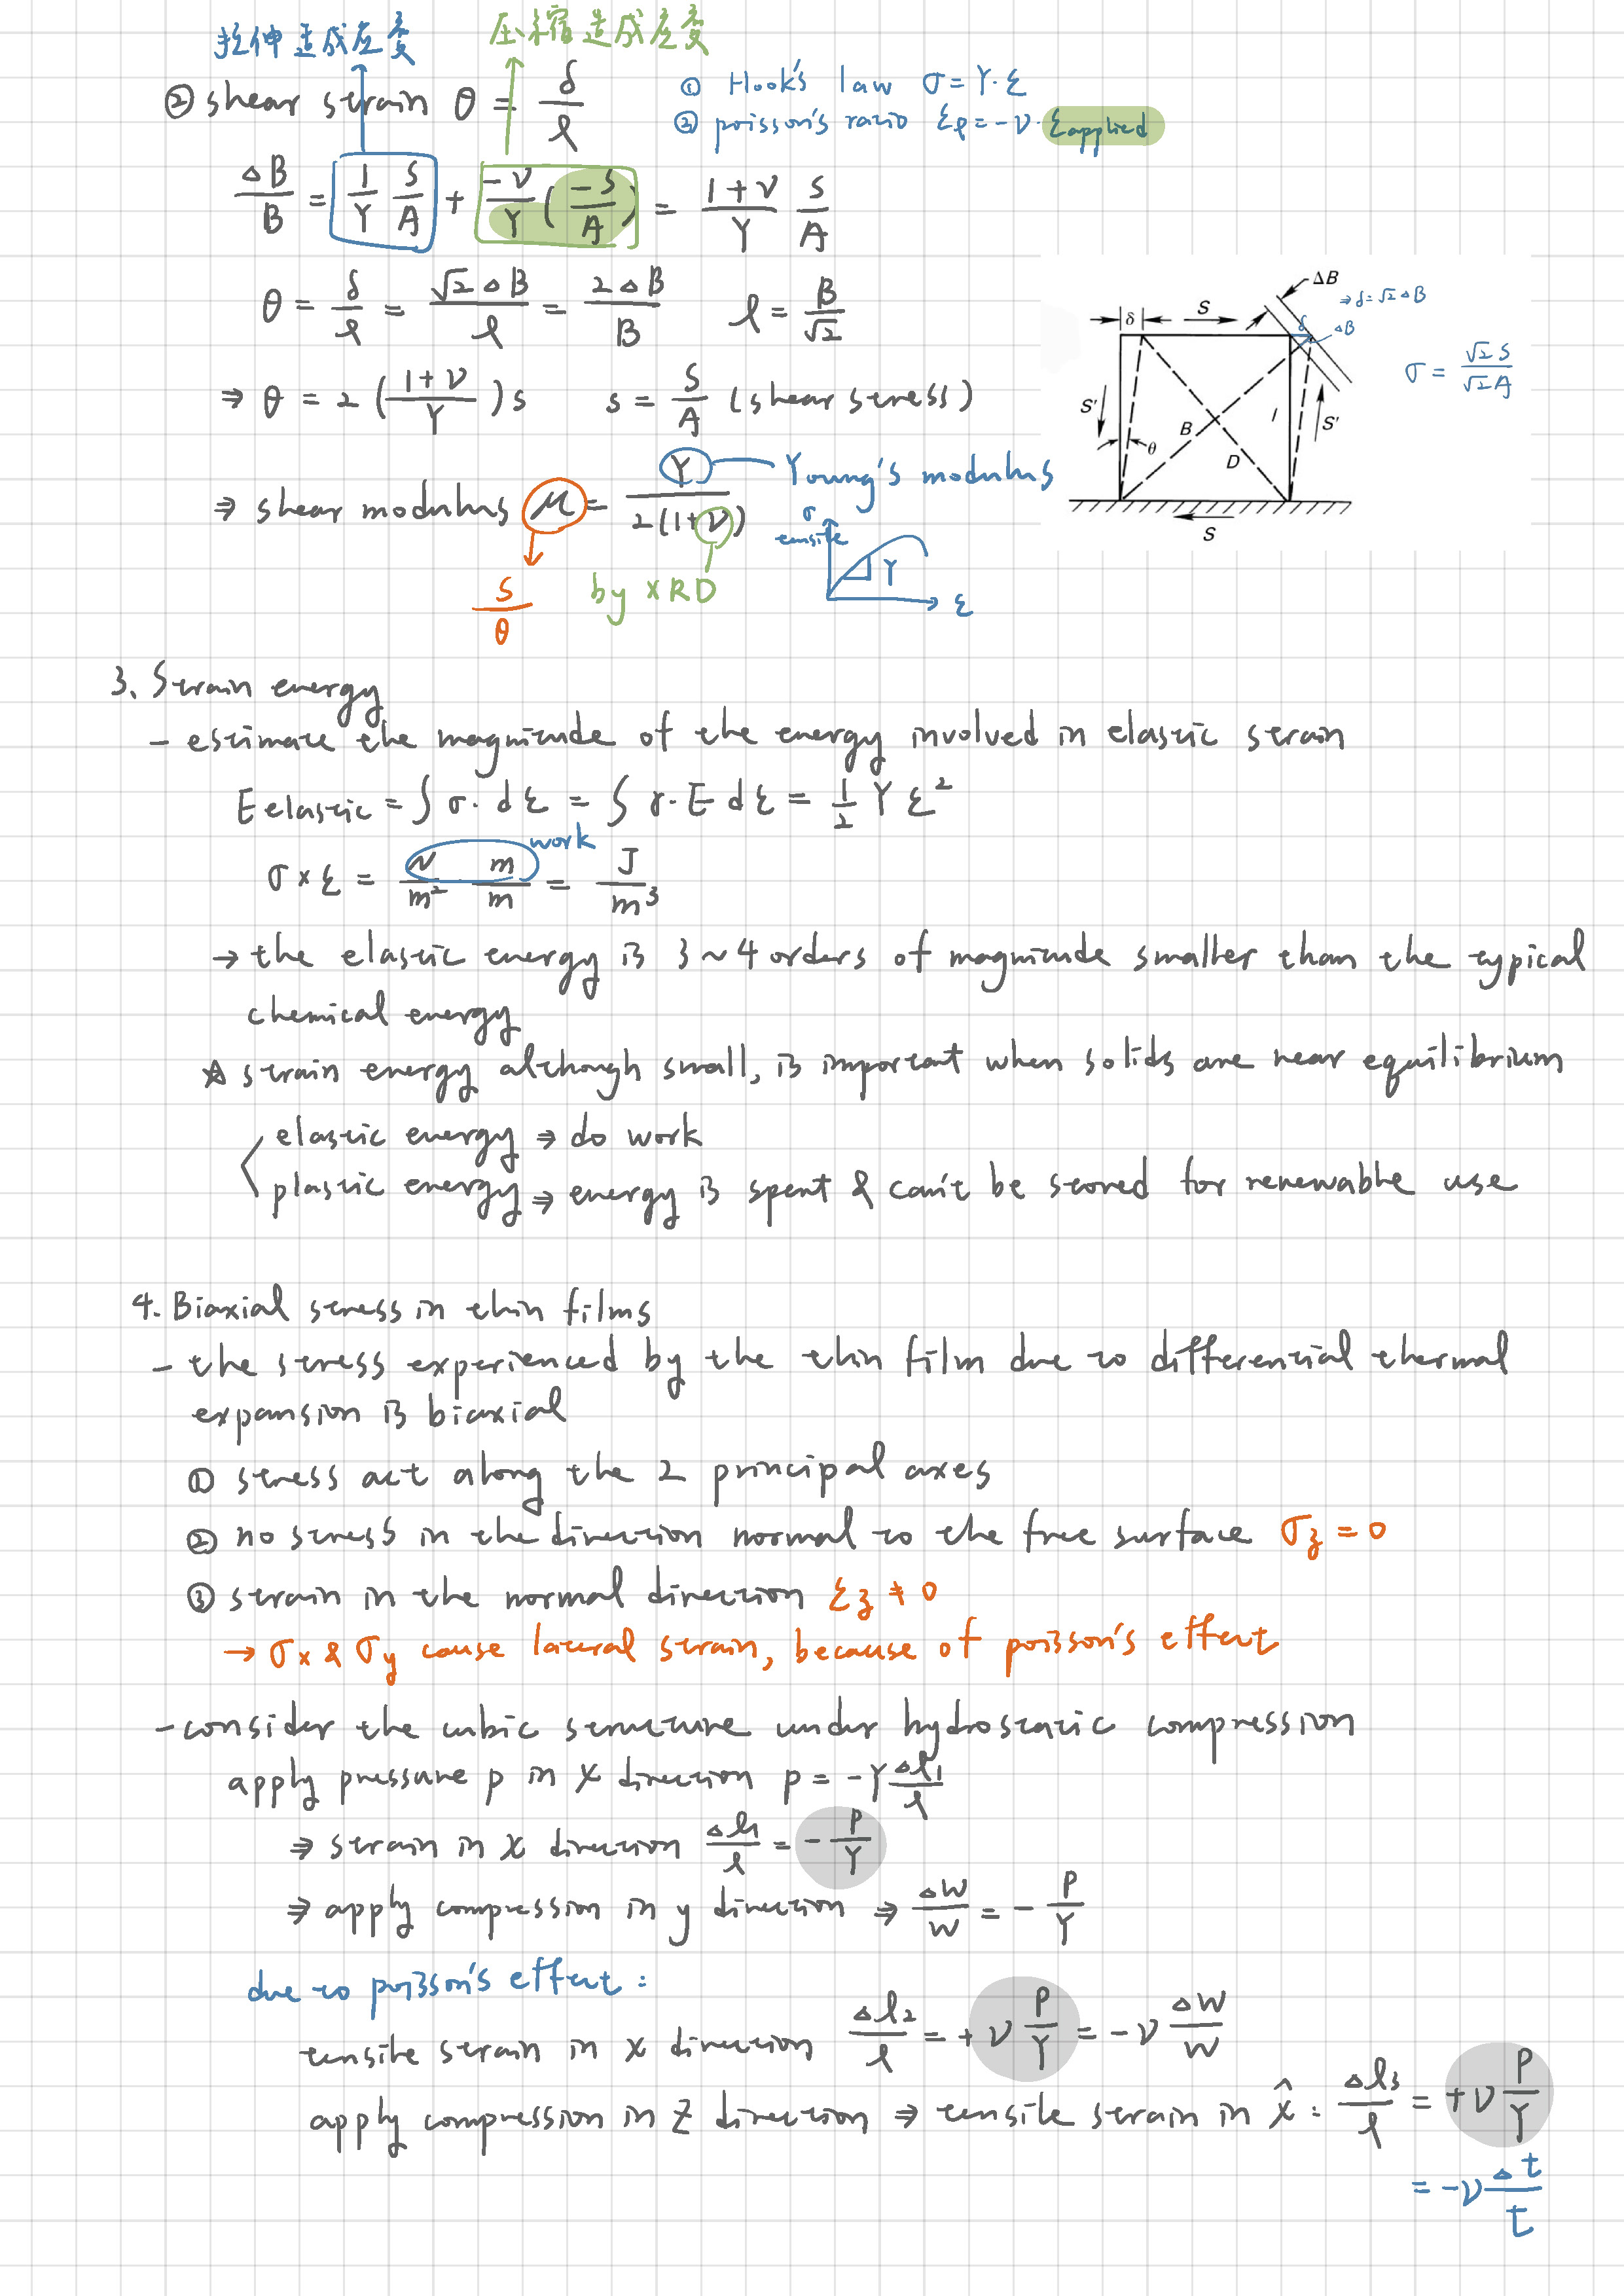 拉伸造成应变
压缩造成应变
② shear strain θ = δ/l
① Hook's law σ = Y·ε
② poisson's ratio εp = -ν·εapplied
ΔB/B = 1/Y S/A + -ν/Y (-S/A) = 1+ν/Y S/A
θ = δ/l = √2ΔB/l = 2ΔB/B l = B/√2
⇒ θ = 2(1+ν/Y)s s = S/A (shear stress)
⇒ shear modulus μ = Y/2(1+ν)
Young's modulus
S/θ
by XRD
σ
tensile
Y
ε
ΔB
⇒ δ = √2ΔB
δ
S
δ
ΔB
σ = √2S/√2A
S'
B
l
S'
θ
D
S
3. Strain energy
- estimate the magnitude of the energy involved in elastic strain
E elastic = ∫σ·dε = ∫γ·E dε = 1/2 Y ε²
work
σ×ε = N/m² m/m = J/m³
→ the elastic energy is 3~4 orders of magnitude smaller than the typical
chemical energy
☆ strain energy although small, is important when solids are near equilibrium
elastic energy ⇒ do work
plastic energy ⇒ energy is spent & can't be stored for renewable use
4. Biaxial stress in thin films
- the stress experienced by the thin film due to differential thermal
expansion is biaxial
① stress act along the 2 principal axes
② no stress in the direction normal to the free surface σz = 0
③ strain in the normal direction εz ≠ 0
→ σx & σy cause lateral strain, because of poisson's effect
- consider the cubic structure under hydrostatic compression
apply pressure p in x direction p = -Y Δl1/l
⇒ strain in x direction Δl1/l = -P/Y
⇒ apply compression in y direction ⇒ ΔW/W = -P/Y
due to poisson's effect :
tensile strain in x direction Δl2/l = +ν P/Y = -ν ΔW/W
apply compression in z direction ⇒ tensile strain in x̂ : Δl3/l = +ν P/Y
= -ν Δt/t